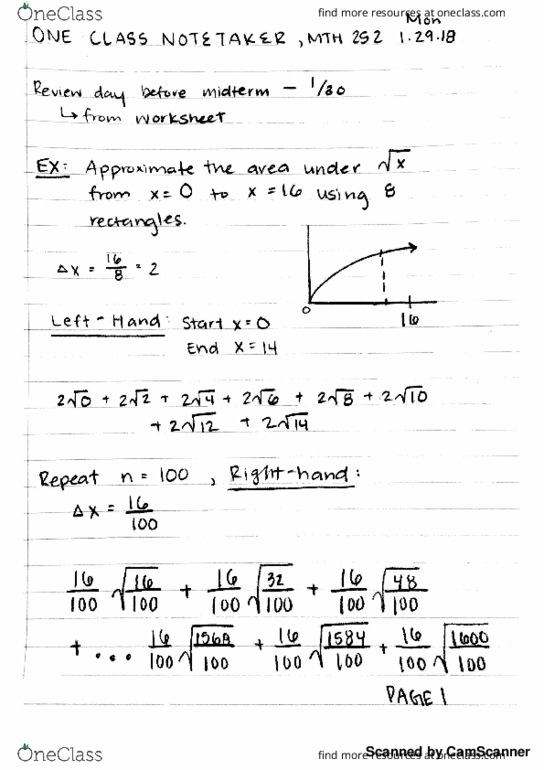 OneClass
find more resources at oneclass.com
find more resources at oneclass.com
Mon
ONE CLASS NOTETAKER, MTH 252 1.29.18
Review day before midterm – 1/30
↳ from worksheet
EX: Approximate the area under √x
from x=0 to x=16 using 8
rectangles.
Δx = 16/8 = 2
0 16
Left-Hand: Start x=0
End x=14
2√0 + 2√2 + 2√4 + 2√6 + 2√8 + 2√10
+ 2√12 + 2√14
Repeat n = 100, Right-hand:
Δx = 16/100
16/100 √(16/100) + 16/100 √(32/100) + 16/100 √(48/100)
+ ... 16/100 √(1568/100) + 16/100 √(1584/100) + 16/100 √(1600/100)
PAGE 1
Scanned by CamScanner
OneClass
find more resources at oneclass.com